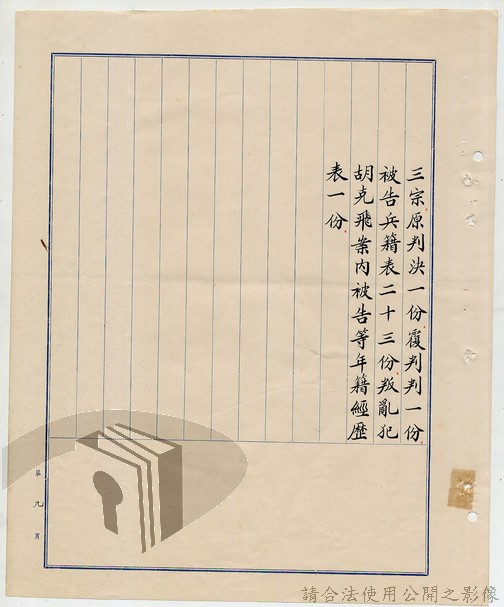 三宗原判決一份覆判判一份
被告兵籍表二十三份叛亂犯
胡克飛案內被告等年籍經歷
表一份
第九頁
請合法使用公開之影像